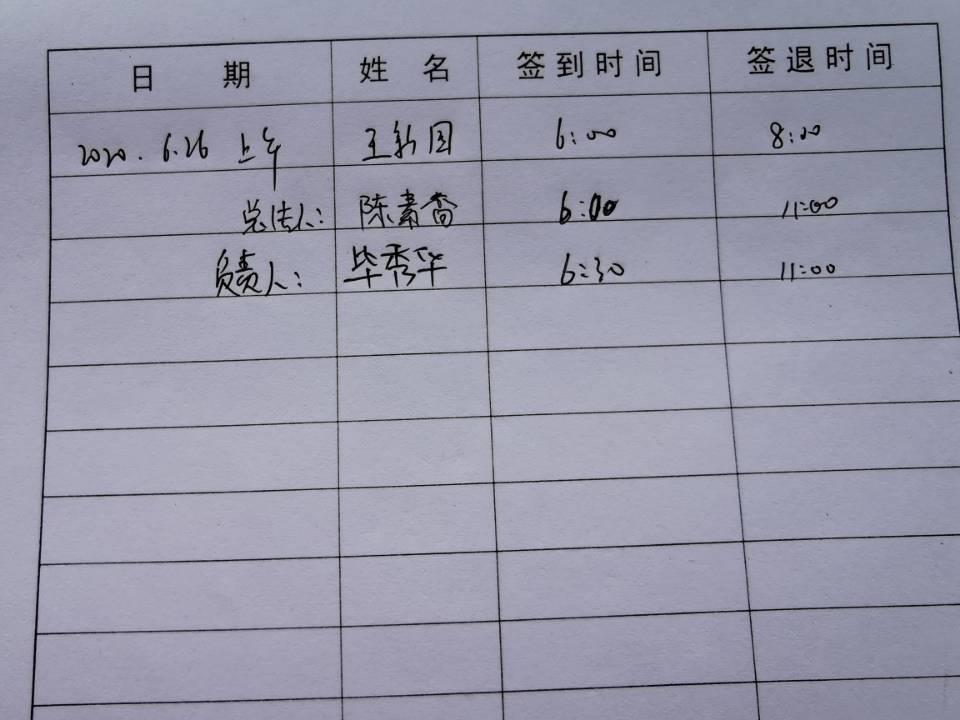 日 期 姓 名 签到时间 签退时间
2020.6.26 上午 王新国 6:00 8:00
总法人: 陈素香 6:00 11:00
负责人: 毕秀华 6:30 11:00